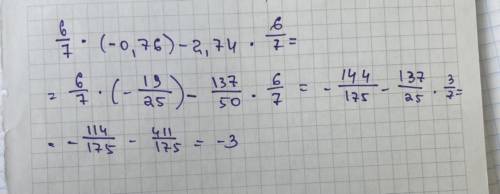 6/7 · (-0,76) - 2,74 · 6/7 =
= 6/7 · (- 19/25) - 137/50 · 6/7 = - 144/175 - 137/25 · 3/7 =
= - 114/175 - 411/175 = -3